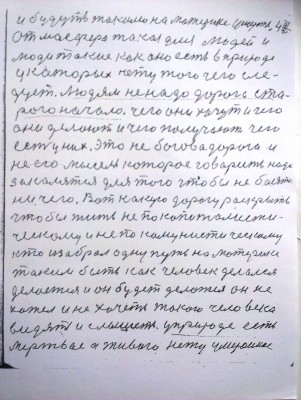 и будуть такими на материке
От масфера такая для людей и
люди такие как оно есть в природе
у каторых нету того чего сле-
дует. Людям ненадо дорога ста-
рого начало. чего они хочут и чего
они делают и чего получают чего
есть у них. Это не богова дорога и
не его мысель которое говарить надо
закалятся для того чтобы не боятся
ни чего. Вот какую дорогу раскрыть
чтобы жить не по капиталисти-
ческому и не по комунистическому
кто избрал одну путь на материке
таким быть как человек делался
делается и он будет делатся он не
хотел и не хочеть такого человека
видять и слышеть. у природе есть
мертвае а живого нету